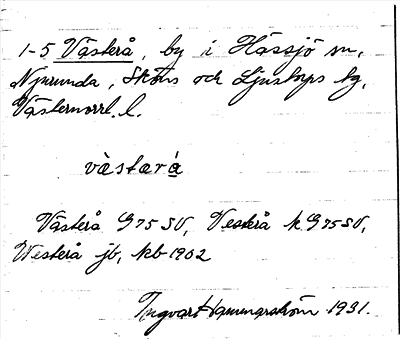 1-5 Västerå, by i Hässjö sn,
Njurunda, Sköns och Ljustorps tg,
Västernorrl. l.
västərå
Västerå G75SV, Vesterå k G75SV,
Westerå jb, kb 1902
Ingvar Hammarström 1931.